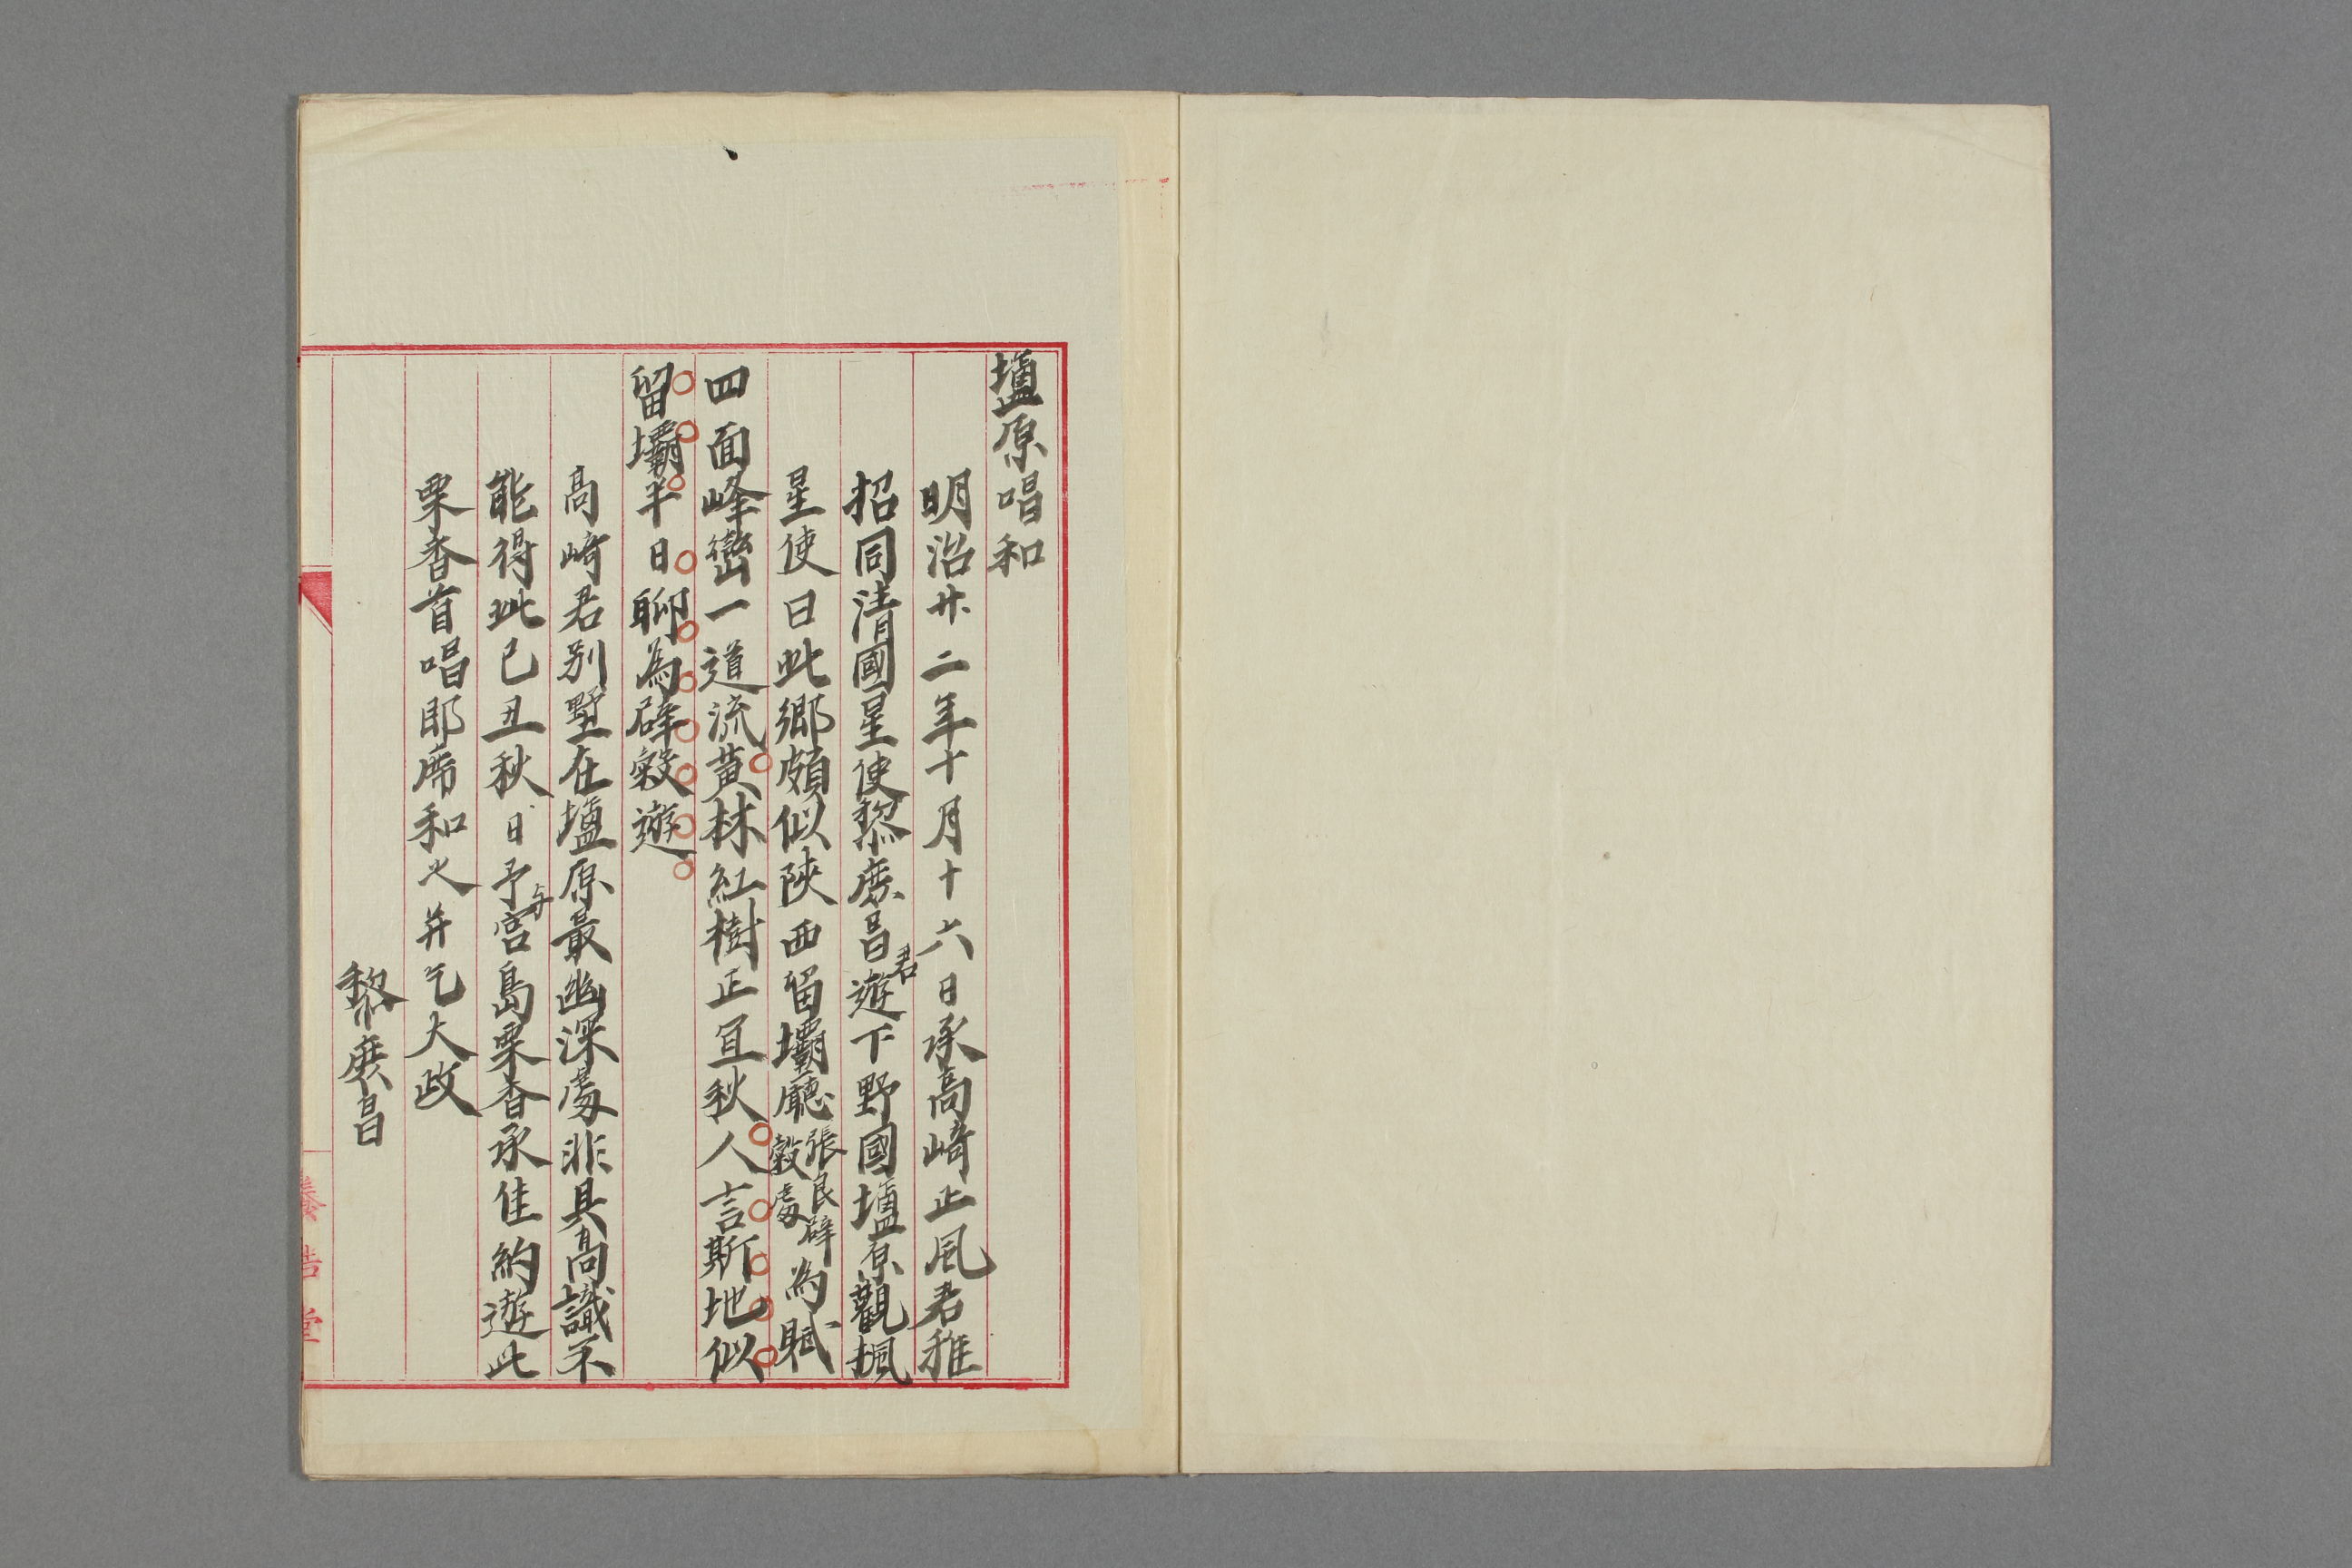 塩原唱和
明治廿二年十月十六日承高崎正風君稚
招同清國星使黎庶昌君遊下野國塩原觀楓
星使曰此鄉頗似陝西留壩廳張良辟穀處為賦
四面峰巒一道流黃林紅樹正宜秋人言斯地似
留壩半日聊為辟穀遊
高崎君別墅在塩原最幽深處非具高識不
能得此己丑秋日予与宮島栗香承佳約遊此
栗香首唱即席和之并乞大政
黎庶昌
養浩堂